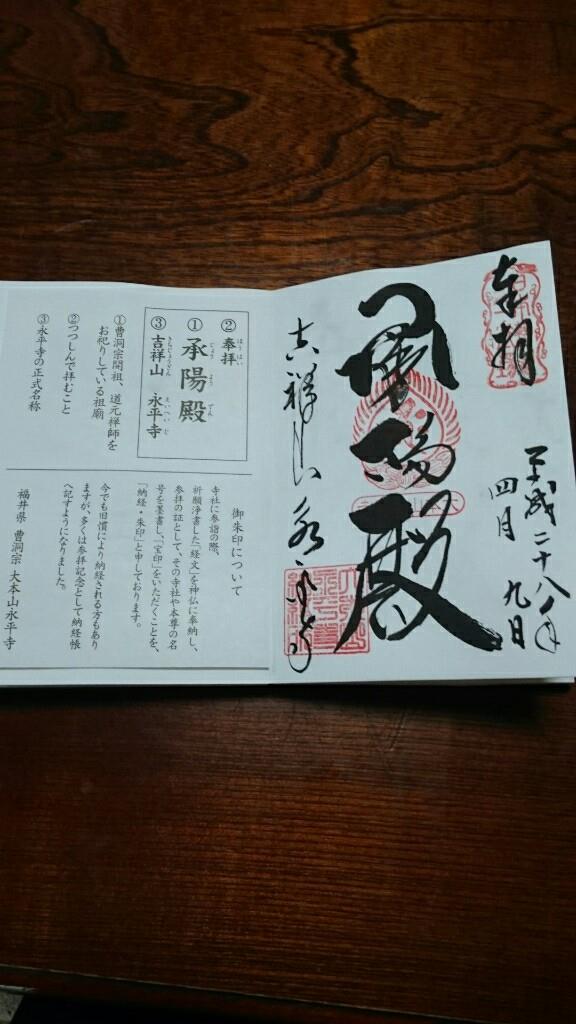 奉拝
平成二十八年
四月 九日
承陽殿
吉祥山 永平寺
②奉拝
ほうはい
①承陽殿
じょうようでん
③吉祥山 永平寺
きちじょうざん えいへいじ
①曹洞宗開祖、道元禅師を
お祀りしている祖廟
②つつしんで拝むこと
③永平寺の正式名称
御朱印について
寺社に参詣の際、
祈願浄書した「経文」を神仏に奉納し、
参拝の証として、その寺社や本尊の名
号を墨書し、「宝印」をいただくことを、
「納経・朱印」と申しております。
今でも旧慣により納経される方もあり
ますが、多くは参拝記念として納経帳
へ記すようになりました。
福井県 曹洞宗 大本山永平寺